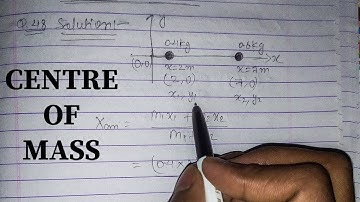 Solution:-
y
0.4kg 0.6kg
(0,0) x=2m x=7m x
(2,0) (7,0)
x₁,y₁ x₂,y₂
CENTRE
OF
MASS
Xcm = m₁x₁ + x₂
m₁
= (0.4×